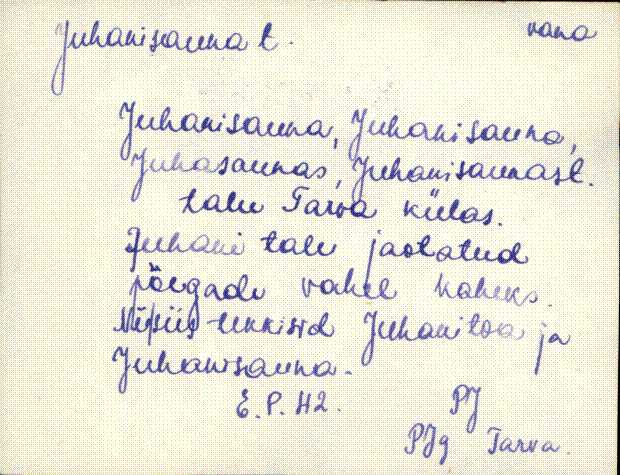 Juhanisauna t. vana
Juhanisauna, Juhanisauna,
Juhasaunas, Juhanisaunast.
talu Tarva külas.
Juhani talu jaotatud
põegade vahel kaheks.
Niisiis tekkisid Juhanitoa ja
Juhanisauna.
E. P. 42. PJ
PJg Tarva.